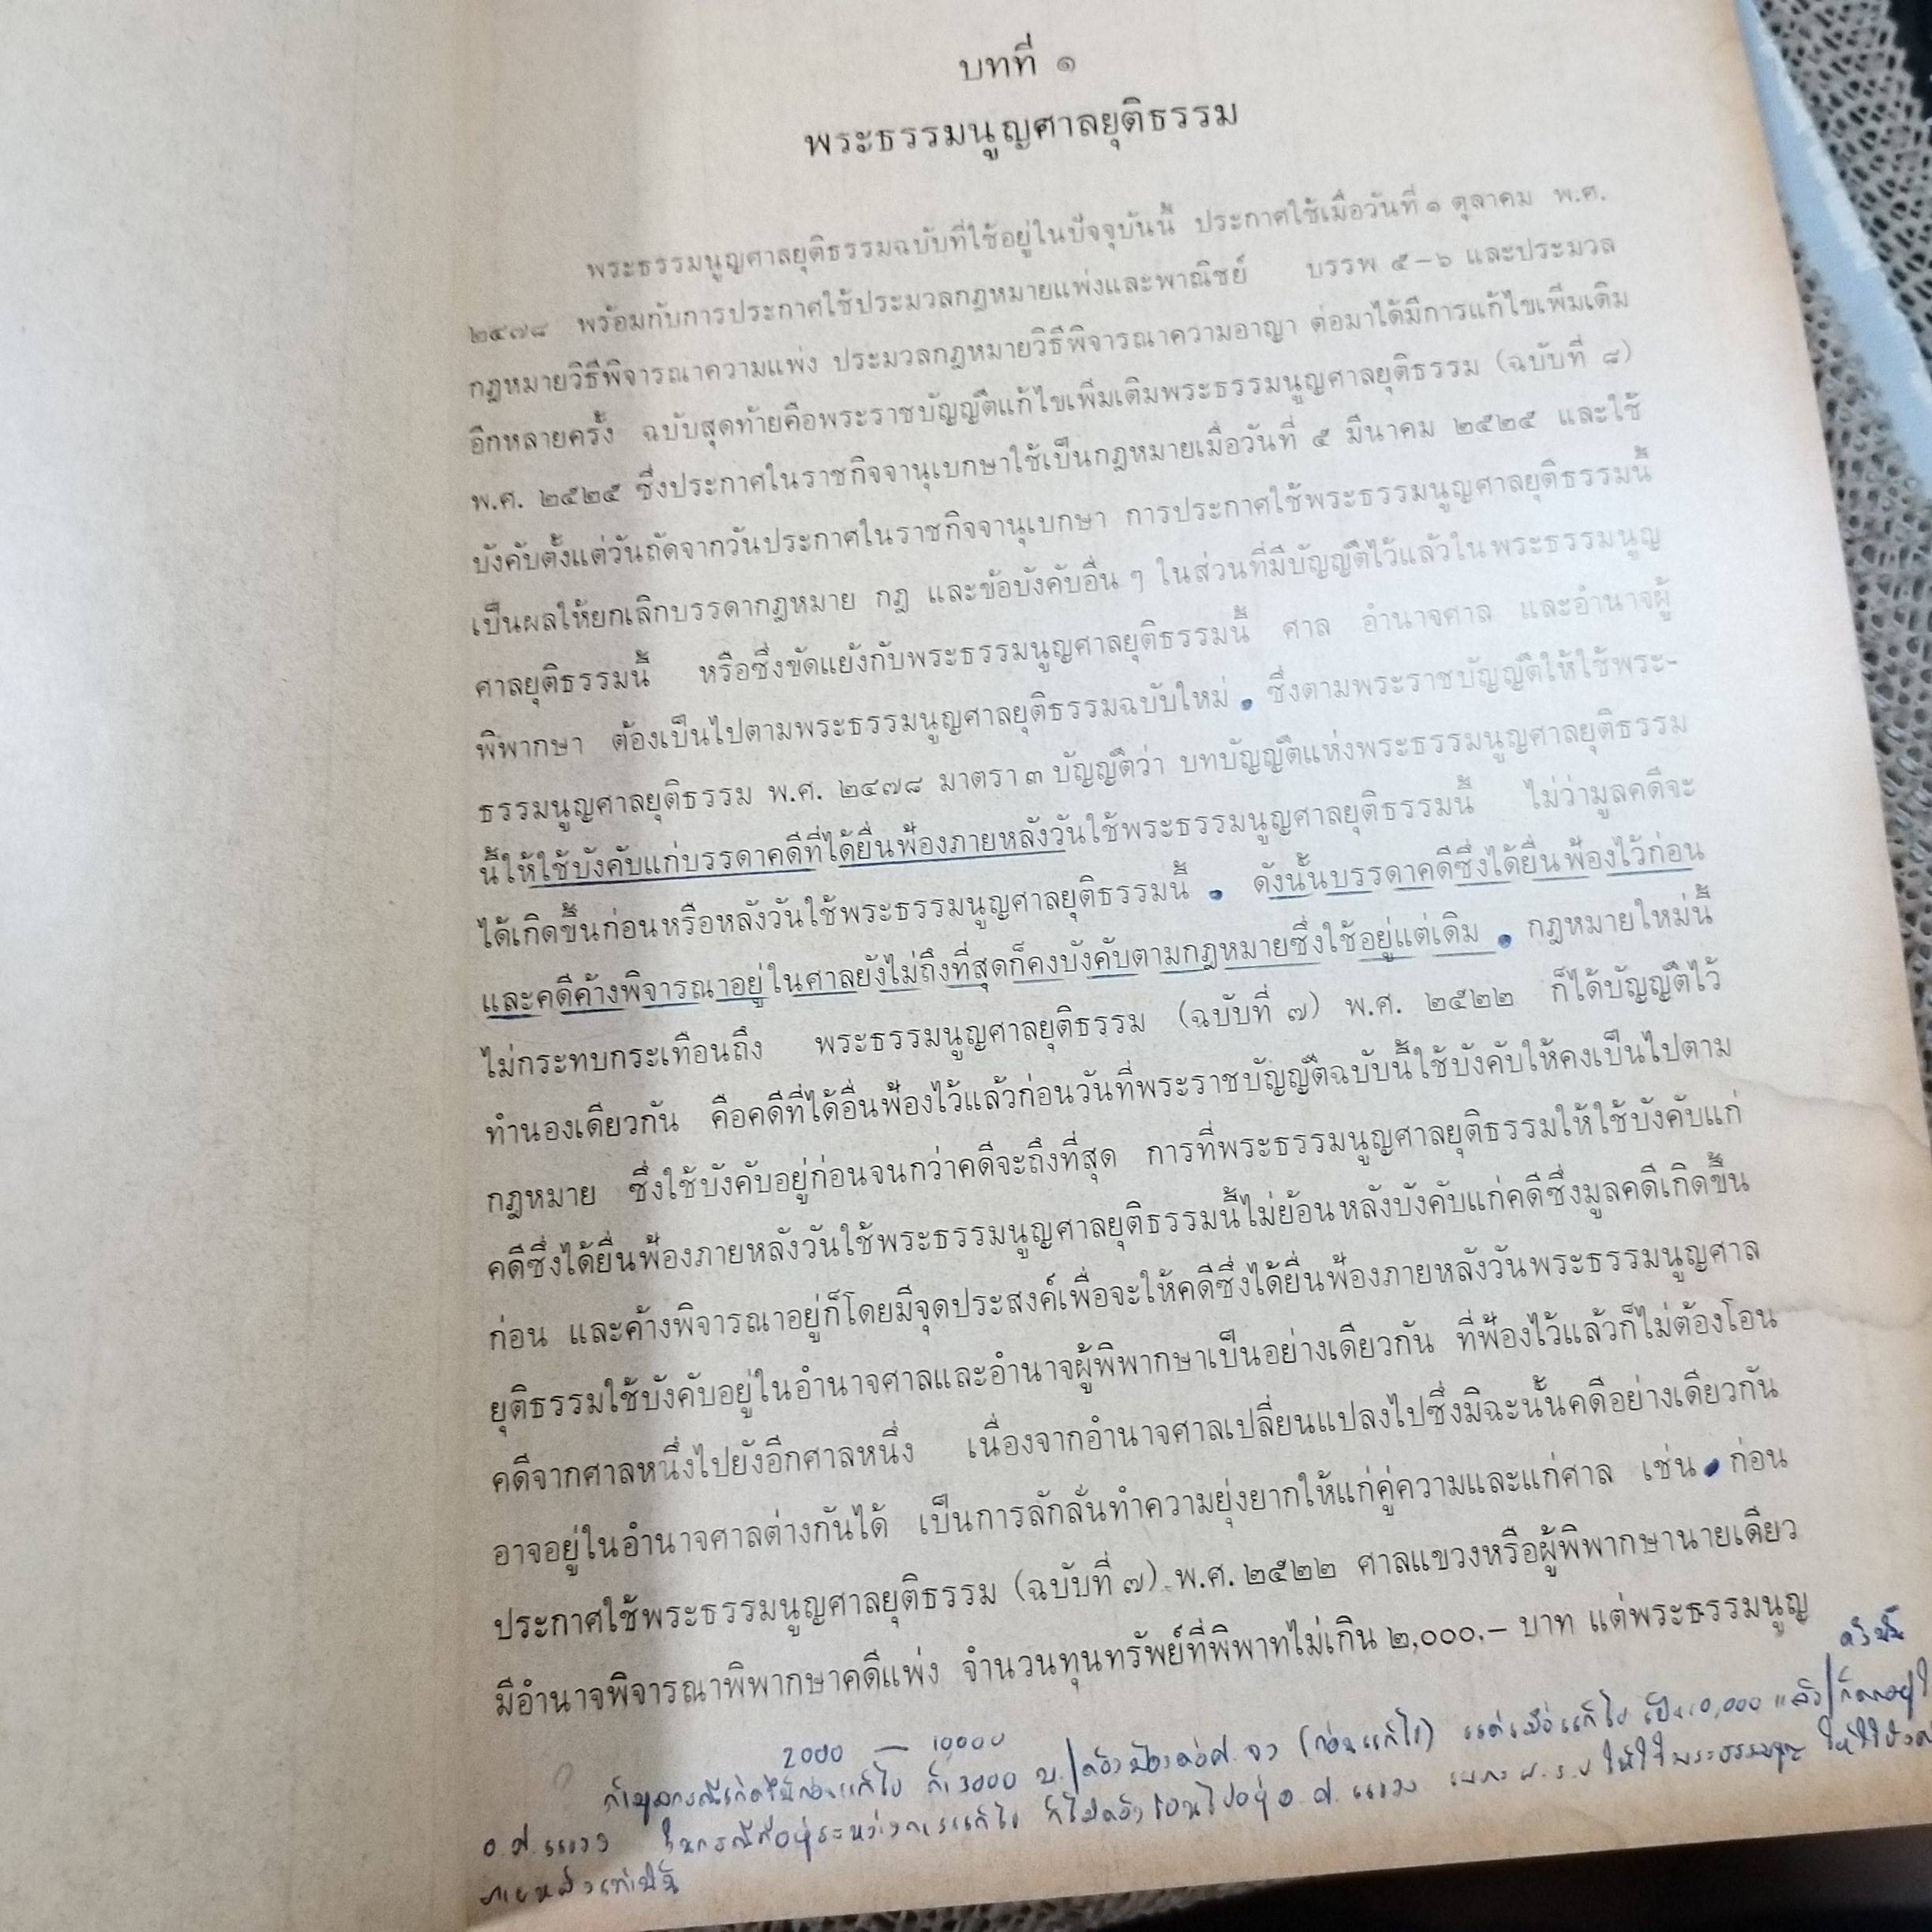 บทที่ ๑
พระธรรมนูญศาลยุติธรรม
พระธรรมนูญศาลยุติธรรมฉบับที่ใช้อยู่ในปัจจุบันนี้ ประกาศใช้เมื่อวันที่ ๑ ตุลาคม พ.ศ.
๒๔๗๘ พร้อมกับการประกาศใช้ประมวลกฎหมายแพ่งและพาณิชย์ บรรพ ๕-๖ และประมวล
กฎหมายวิธีพิจารณาความแพ่ง ประมวลกฎหมายวิธีพิจารณาความอาญา ต่อมาได้มีการแก้ไขเพิ่มเติม
อีกหลายครั้ง ฉบับสุดท้ายคือพระราชบัญญัติแก้ไขเพิ่มเติมพระธรรมนูญศาลยุติธรรม (ฉบับที่ ๘)
พ.ศ. ๒๕๒๕ ซึ่งประกาศในราชกิจจานุเบกษาใช้เป็นกฎหมายเมื่อวันที่ ๕ มีนาคม ๒๕๒๕ และใช้
บังคับตั้งแต่วันถัดจากวันประกาศในราชกิจจานุเบกษา การประกาศใช้พระธรรมนูญศาลยุติธรรมนี้
เป็นผลให้ยกเลิกบรรดากฎหมาย กฎ และข้อบังคับอื่น ๆ ในส่วนที่มีบัญญัติไว้แล้วในพระธรรมนูญ
ศาลยุติธรรมนี้ หรือซึ่งขัดแย้งกับพระธรรมนูญศาลยุติธรรมนี้ ศาล อำนาจศาล และอำนาจผู้
พิพากษา ต้องเป็นไปตามพระธรรมนูญศาลยุติธรรมฉบับใหม่ ซึ่งตามพระราชบัญญัติให้ใช้พระ-
ธรรมนูญศาลยุติธรรม พ.ศ. ๒๔๗๘ มาตรา ๓ บัญญัติว่า บทบัญญัติแห่งพระธรรมนูญศาลยุติธรรม
นี้ให้ใช้บังคับแก่บรรดาคดีที่ได้ยื่นฟ้องภายหลังวันใช้พระธรรมนูญศาลยุติธรรมนี้ ไม่ว่ามูลคดีจะ
ได้เกิดขึ้นก่อนหรือหลังวันใช้พระธรรมนูญศาลยุติธรรมนี้ ดังนั้นบรรดาคดีซึ่งได้ยื่นฟ้องไว้ก่อน
และคดีค้างพิจารณาอยู่ในศาลยังไม่ถึงที่สุดก็คงบังคับตามกฎหมายซึ่งใช้อยู่แต่เดิม กฎหมายใหม่นี้
ไม่กระทบกระเทือนถึง พระธรรมนูญศาลยุติธรรม (ฉบับที่ ๗) พ.ศ. ๒๕๒๒ ก็ได้บัญญัติไว้
ทำนองเดียวกัน คือคดีที่ได้อื่นฟ้องไว้แล้วก่อนวันที่พระราชบัญญัติฉบับนี้ใช้บังคับให้คงเป็นไปตาม
กฎหมาย ซึ่งใช้บังคับอยู่ก่อนจนกว่าคดีจะถึงที่สุด การที่พระธรรมนูญศาลยุติธรรมให้ใช้บังคับแก่
คดีซึ่งได้ยื่นฟ้องภายหลังวันใช้พระธรรมนูญศาลยุติธรรมนี้ไม่ย้อนหลังบังคับแก่คดีซึ่งมูลคดีเกิดขึ้น
ก่อน และค้างพิจารณาอยู่ก็โดยมีจุดประสงค์เพื่อจะให้คดีซึ่งได้ยื่นฟ้องภายหลังวันพระธรรมนูญศาล
ยุติธรรมใช้บังคับอยู่ในอำนาจศาลและอำนาจผู้พิพากษาเป็นอย่างเดียวกัน ที่ฟ้องไว้แล้วก็ไม่ต้องโอน
คดีจากศาลหนึ่งไปยังอีกศาลหนึ่ง เนื่องจากอำนาจศาลเปลี่ยนแปลงไปซึ่งมิฉะนั้นคดีอย่างเดียวกัน
อาจอยู่ในอำนาจศาลต่างกันได้ เป็นการลักลั่นทำความยุ่งยากให้แก่คู่ความและแก่ศาล เช่น ก่อน
ประกาศใช้พระธรรมนูญศาลยุติธรรม (ฉบับที่ ๗) พ.ศ. ๒๕๒๒ ศาลแขวงหรือผู้พิพากษานายเดียว
มีอำนาจพิจารณาพิพากษาคดีแพ่ง จำนวนทุนทรัพย์ที่พิพาทไม่เกิน ๒,๐๐๐.- บาท แต่พระธรรมนูญ
ดังนั้น
2000 — 10000
3000 บ. ต้องฟ้องต่อศ. (ก่อนแก้ไข) แต่เมื่อแก้ไข เป็น 10,000 แล้ว
อ.ศ.แขวง ในกรณีที่อยู่ระหว่างการแก้ไข ก็ไม่ต้องโอนไปอยู่ อ.ศ.แขวง ให้ใช้พระธรรมนูญ
ภายหลังเท่านั้น